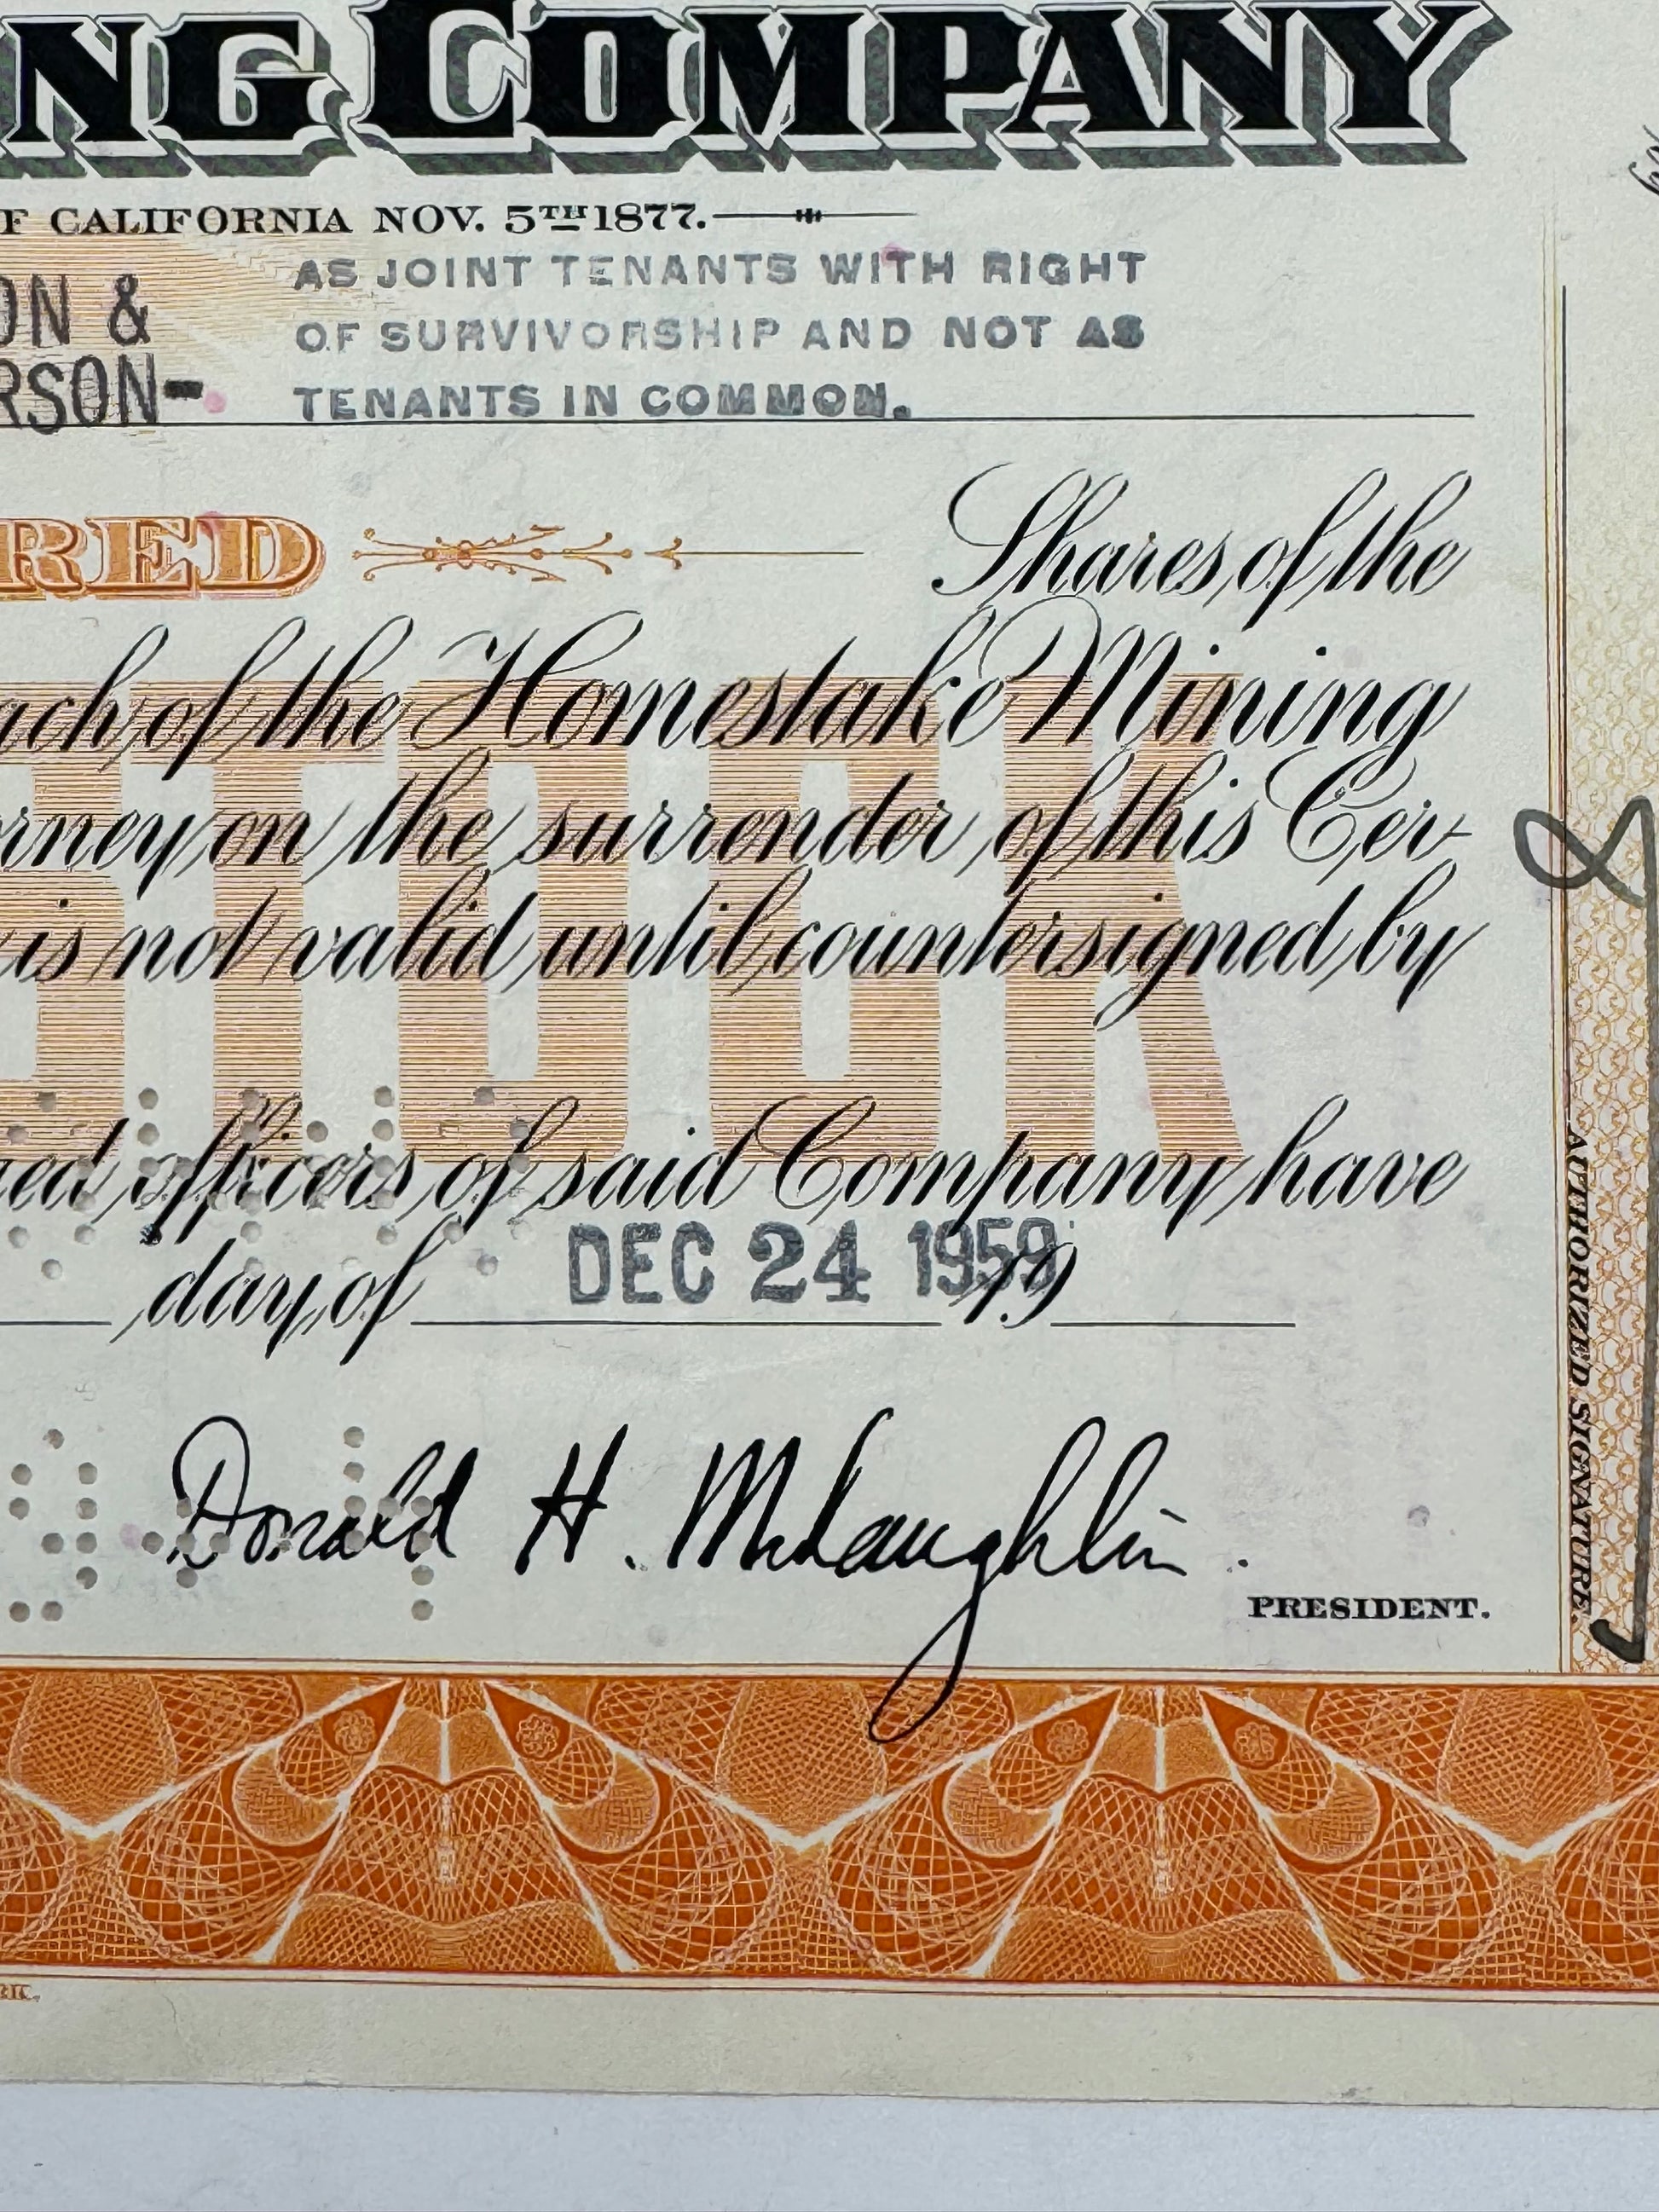 NG COMPANY
F CALIFORNIA NOV. 5TH 1877.
AS JOINT TENANTS WITH RIGHT
ON &
OF SURVIVORSHIP AND NOT AS
RSON-
TENANTS IN COMMON.
RED Shares of the
ach of the Homestake Mining
STOCK
orney on the surrender of this Cer-
is not valid until countersigned by
ned officers of said Company have
day of DEC 24 1959 19
Donald H. McLaughlin.
PRESIDENT.
AUTHORIZED SIGNATURE.
RK.